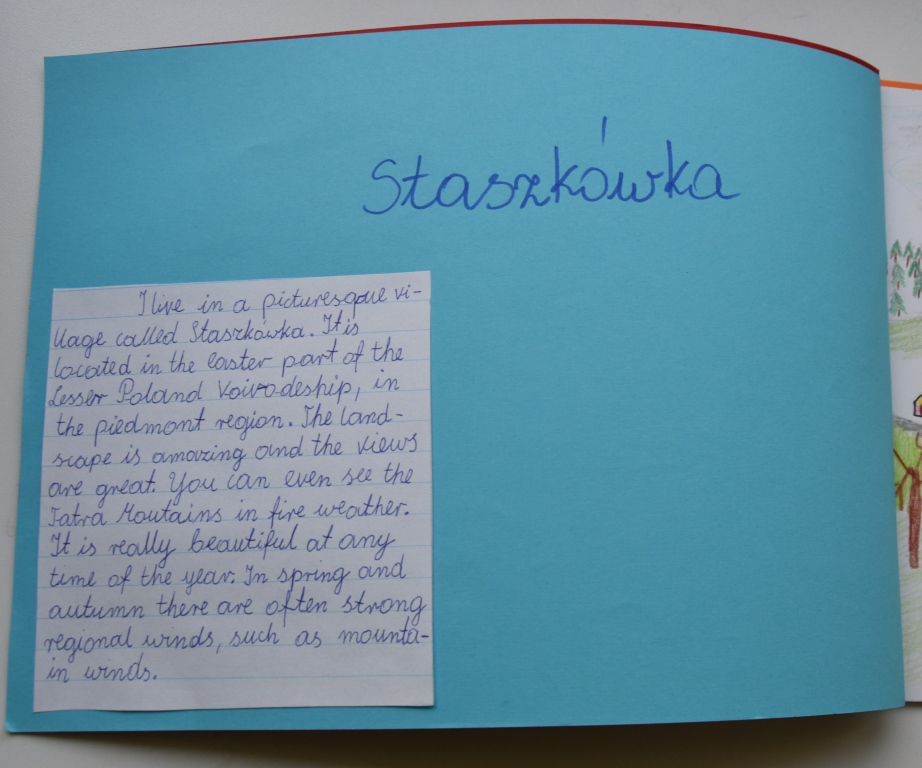 Staszkówka
I live in a picturesque vi-
llage called Staszkówka. It is
located in the easter part of the
Lesser Poland Voivodeship, in
the piedmont region. The land-
scape is amazing and the views
are great. You can even see the
Tatra Moutains in fire weather.
It is really beautiful at any
time of the year. In spring and
autumn there are often strong
regional winds, such as mounta-
in winds.